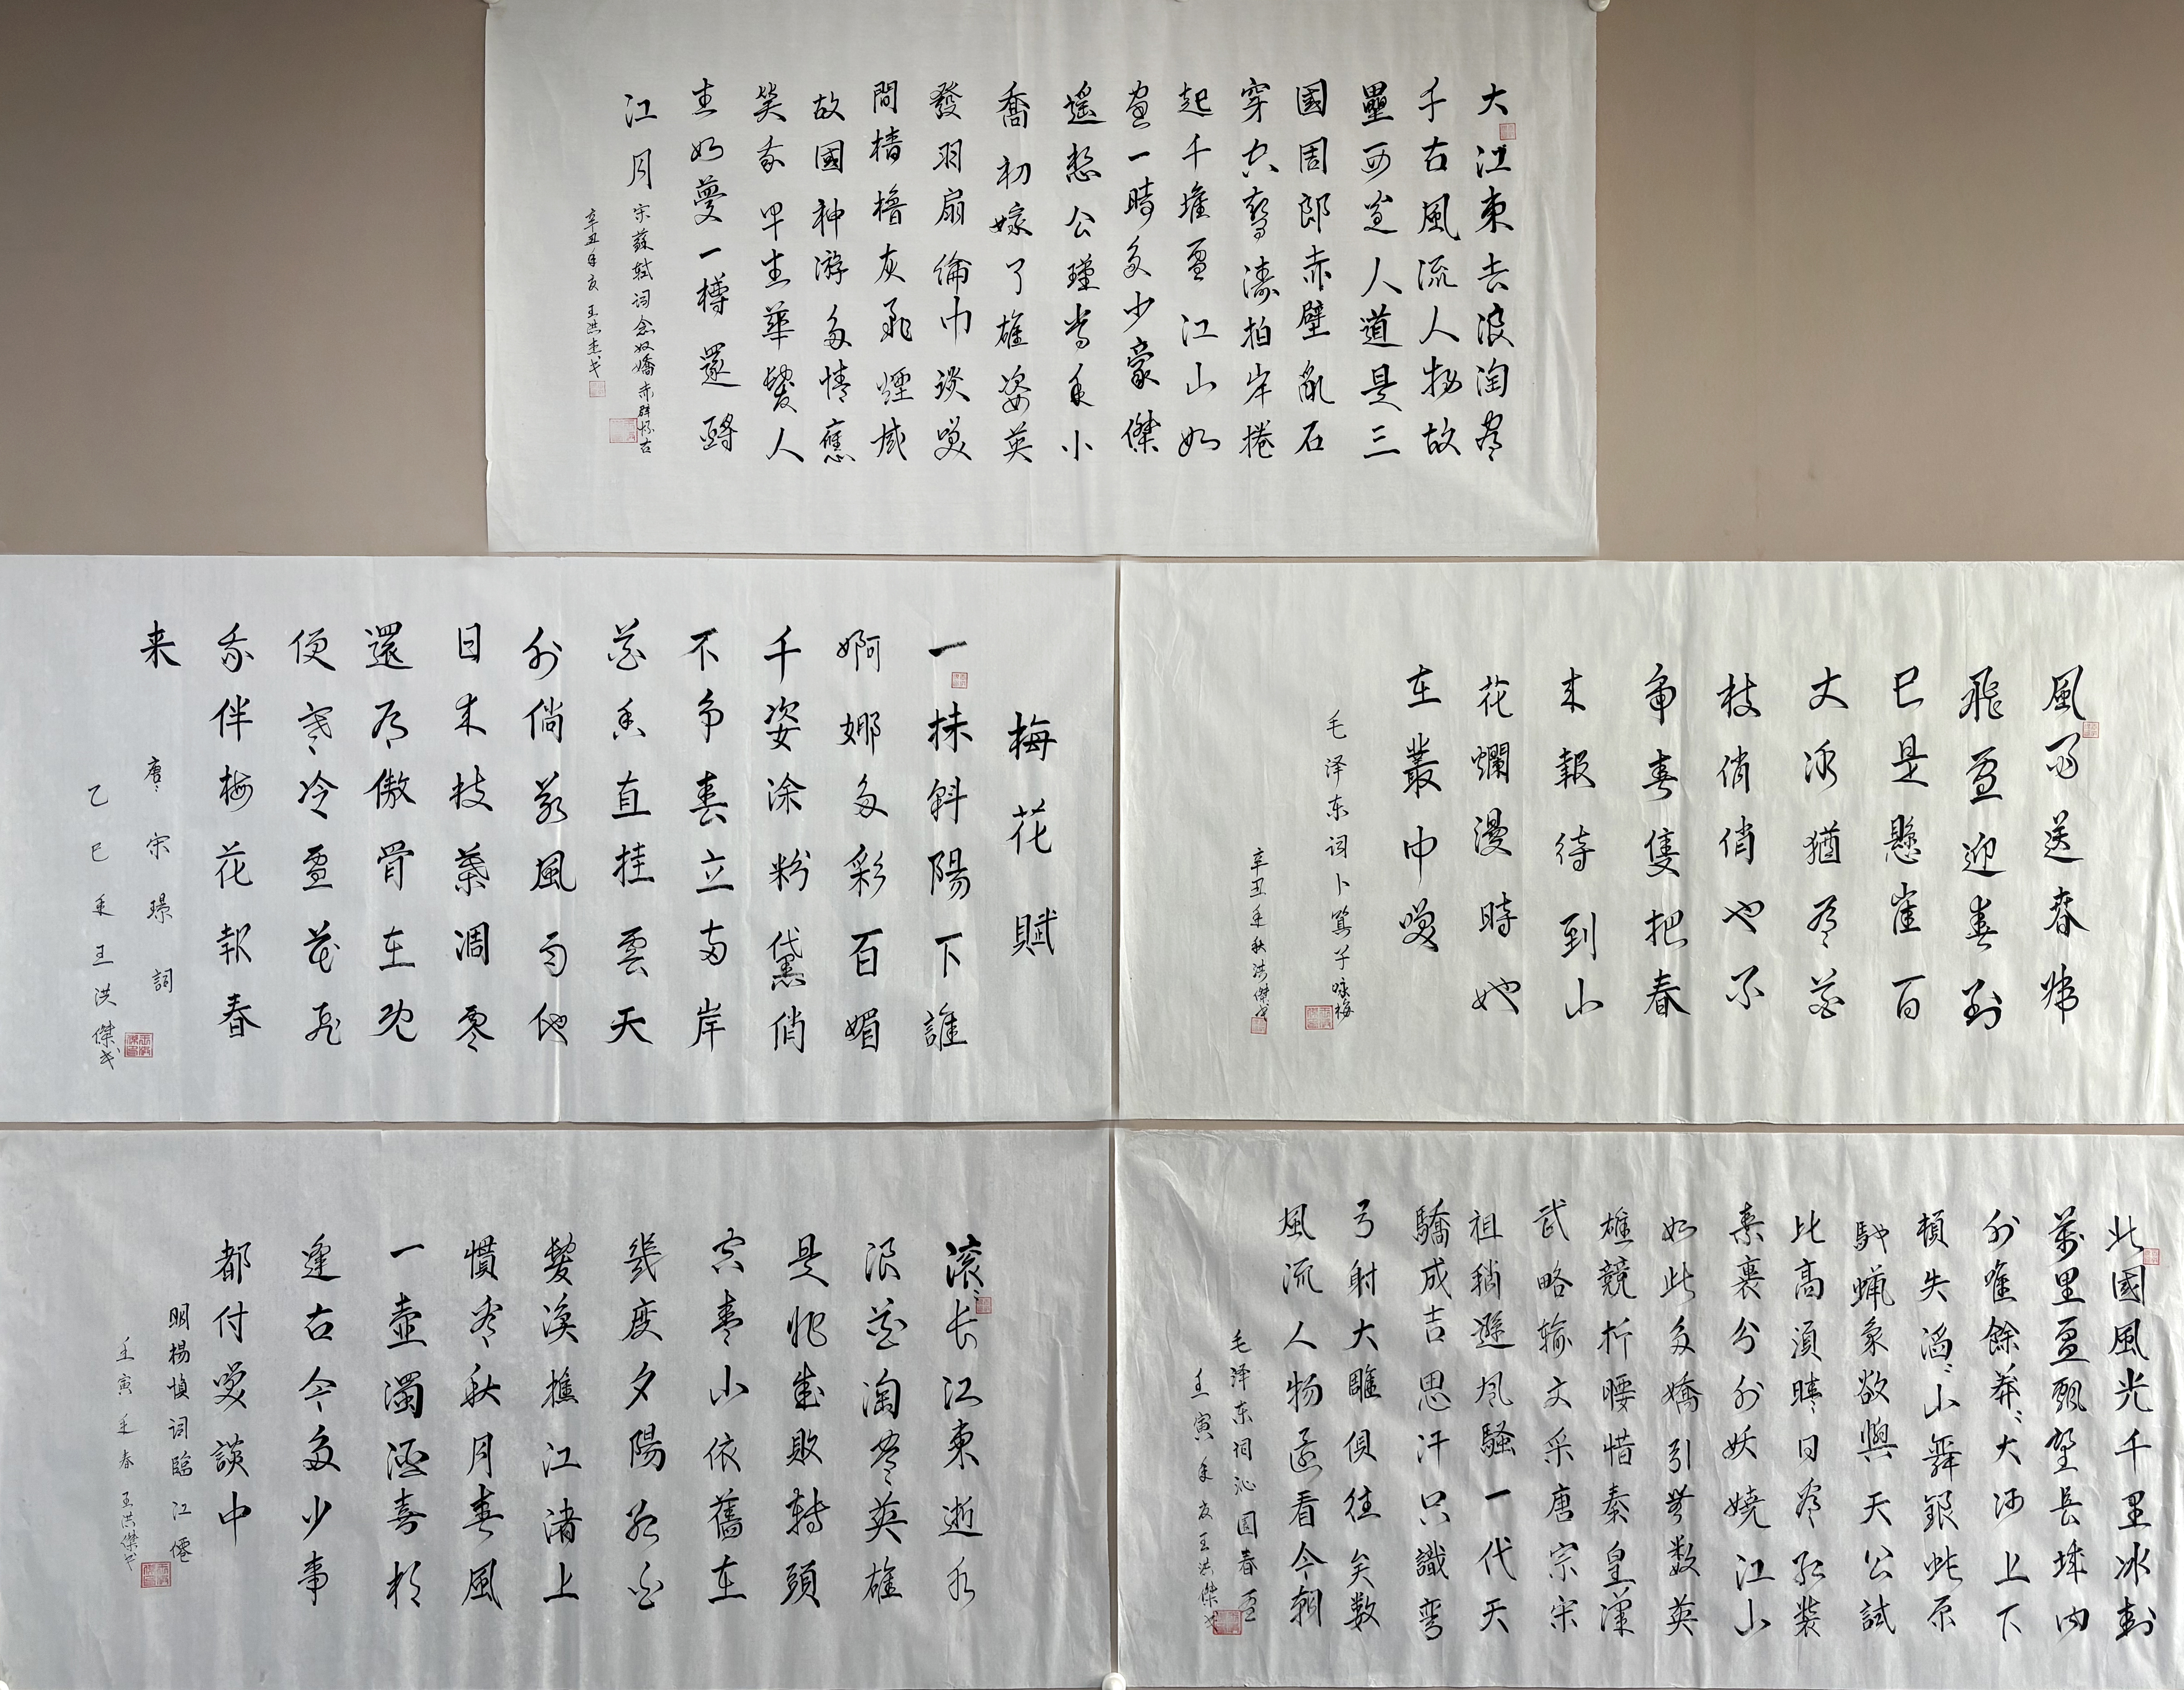 大江東去浪淘盡
千古風流人物故
壘西邊人道是三
國周郎赤壁亂石
穿空驚濤拍岸捲
起千堆雪江山如
畫一時多少豪傑
遙想公瑾當年小
喬初嫁了雄姿英
發羽扇綸巾談笑
間檣櫓灰飛煙滅
故國神游多情應
笑我早生華髮人
生如夢一樽還酹
江月
宋蘇軾词念奴嬌赤壁怀古
辛丑年夏王洪杰书
梅花賦
一抹斜陽下誰
婀娜多彩百媚
千姿涂粉黛俏
不争春立两岸
花香直挂雲天
外倘若風雨他
日来枝葉凋零
還有傲骨在況
便寒冷雪花飛
我伴梅花報春
来
唐宋璟詞
乙巳年王洪傑书
風雨送春歸
飛雪迎春到
已是懸崖百
丈冰猶有花
枝俏俏也不
争春隻把春
来報待到山
花爛漫時她
在叢中笑
毛泽东词卜算子咏梅
辛丑年秋洪傑书
滚滚长江東逝水
浪花淘盡英雄
是非成敗轉頭
空青山依舊在
幾度夕陽紅白
髮漁樵江渚上
慣看秋月春風
一壺濁酒喜相
逢古今多少事
都付笑談中
明楊慎词臨江僊
壬寅年春王洪傑书
北國風光千里冰封
萬里雪飄望長城内
外唯餘莽莽大河上下
頓失滔滔山舞銀蛇原
馳蜡象欲與天公試
比高須晴日看红裝
素裹分外妖嬈江山
如此多嬌引無数英
雄競折腰惜秦皇漢
武略输文采唐宗宋
祖稍遜风騷一代天
驕成吉思汗只識彎
弓射大雕俱往矣数
風流人物還看今朝
毛泽东词沁園春雪
壬寅年夏王洪傑书